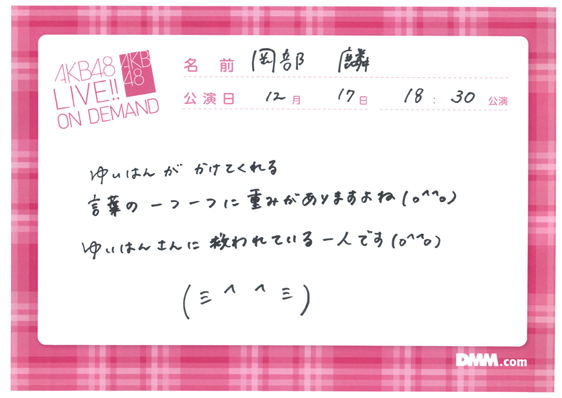 AKB48
LIVE!!
ON DEMAND
AKB
48
名前 岡部 麟
公演日 12月 17日 18:30 公演
ゆいはんが かけてくれる
言葉の一つ一つに重みがありますよね(o^^o)
ゆいはんさんに救われている一人です(o^^o)
(三 ^ ^ 三)
DMM.com